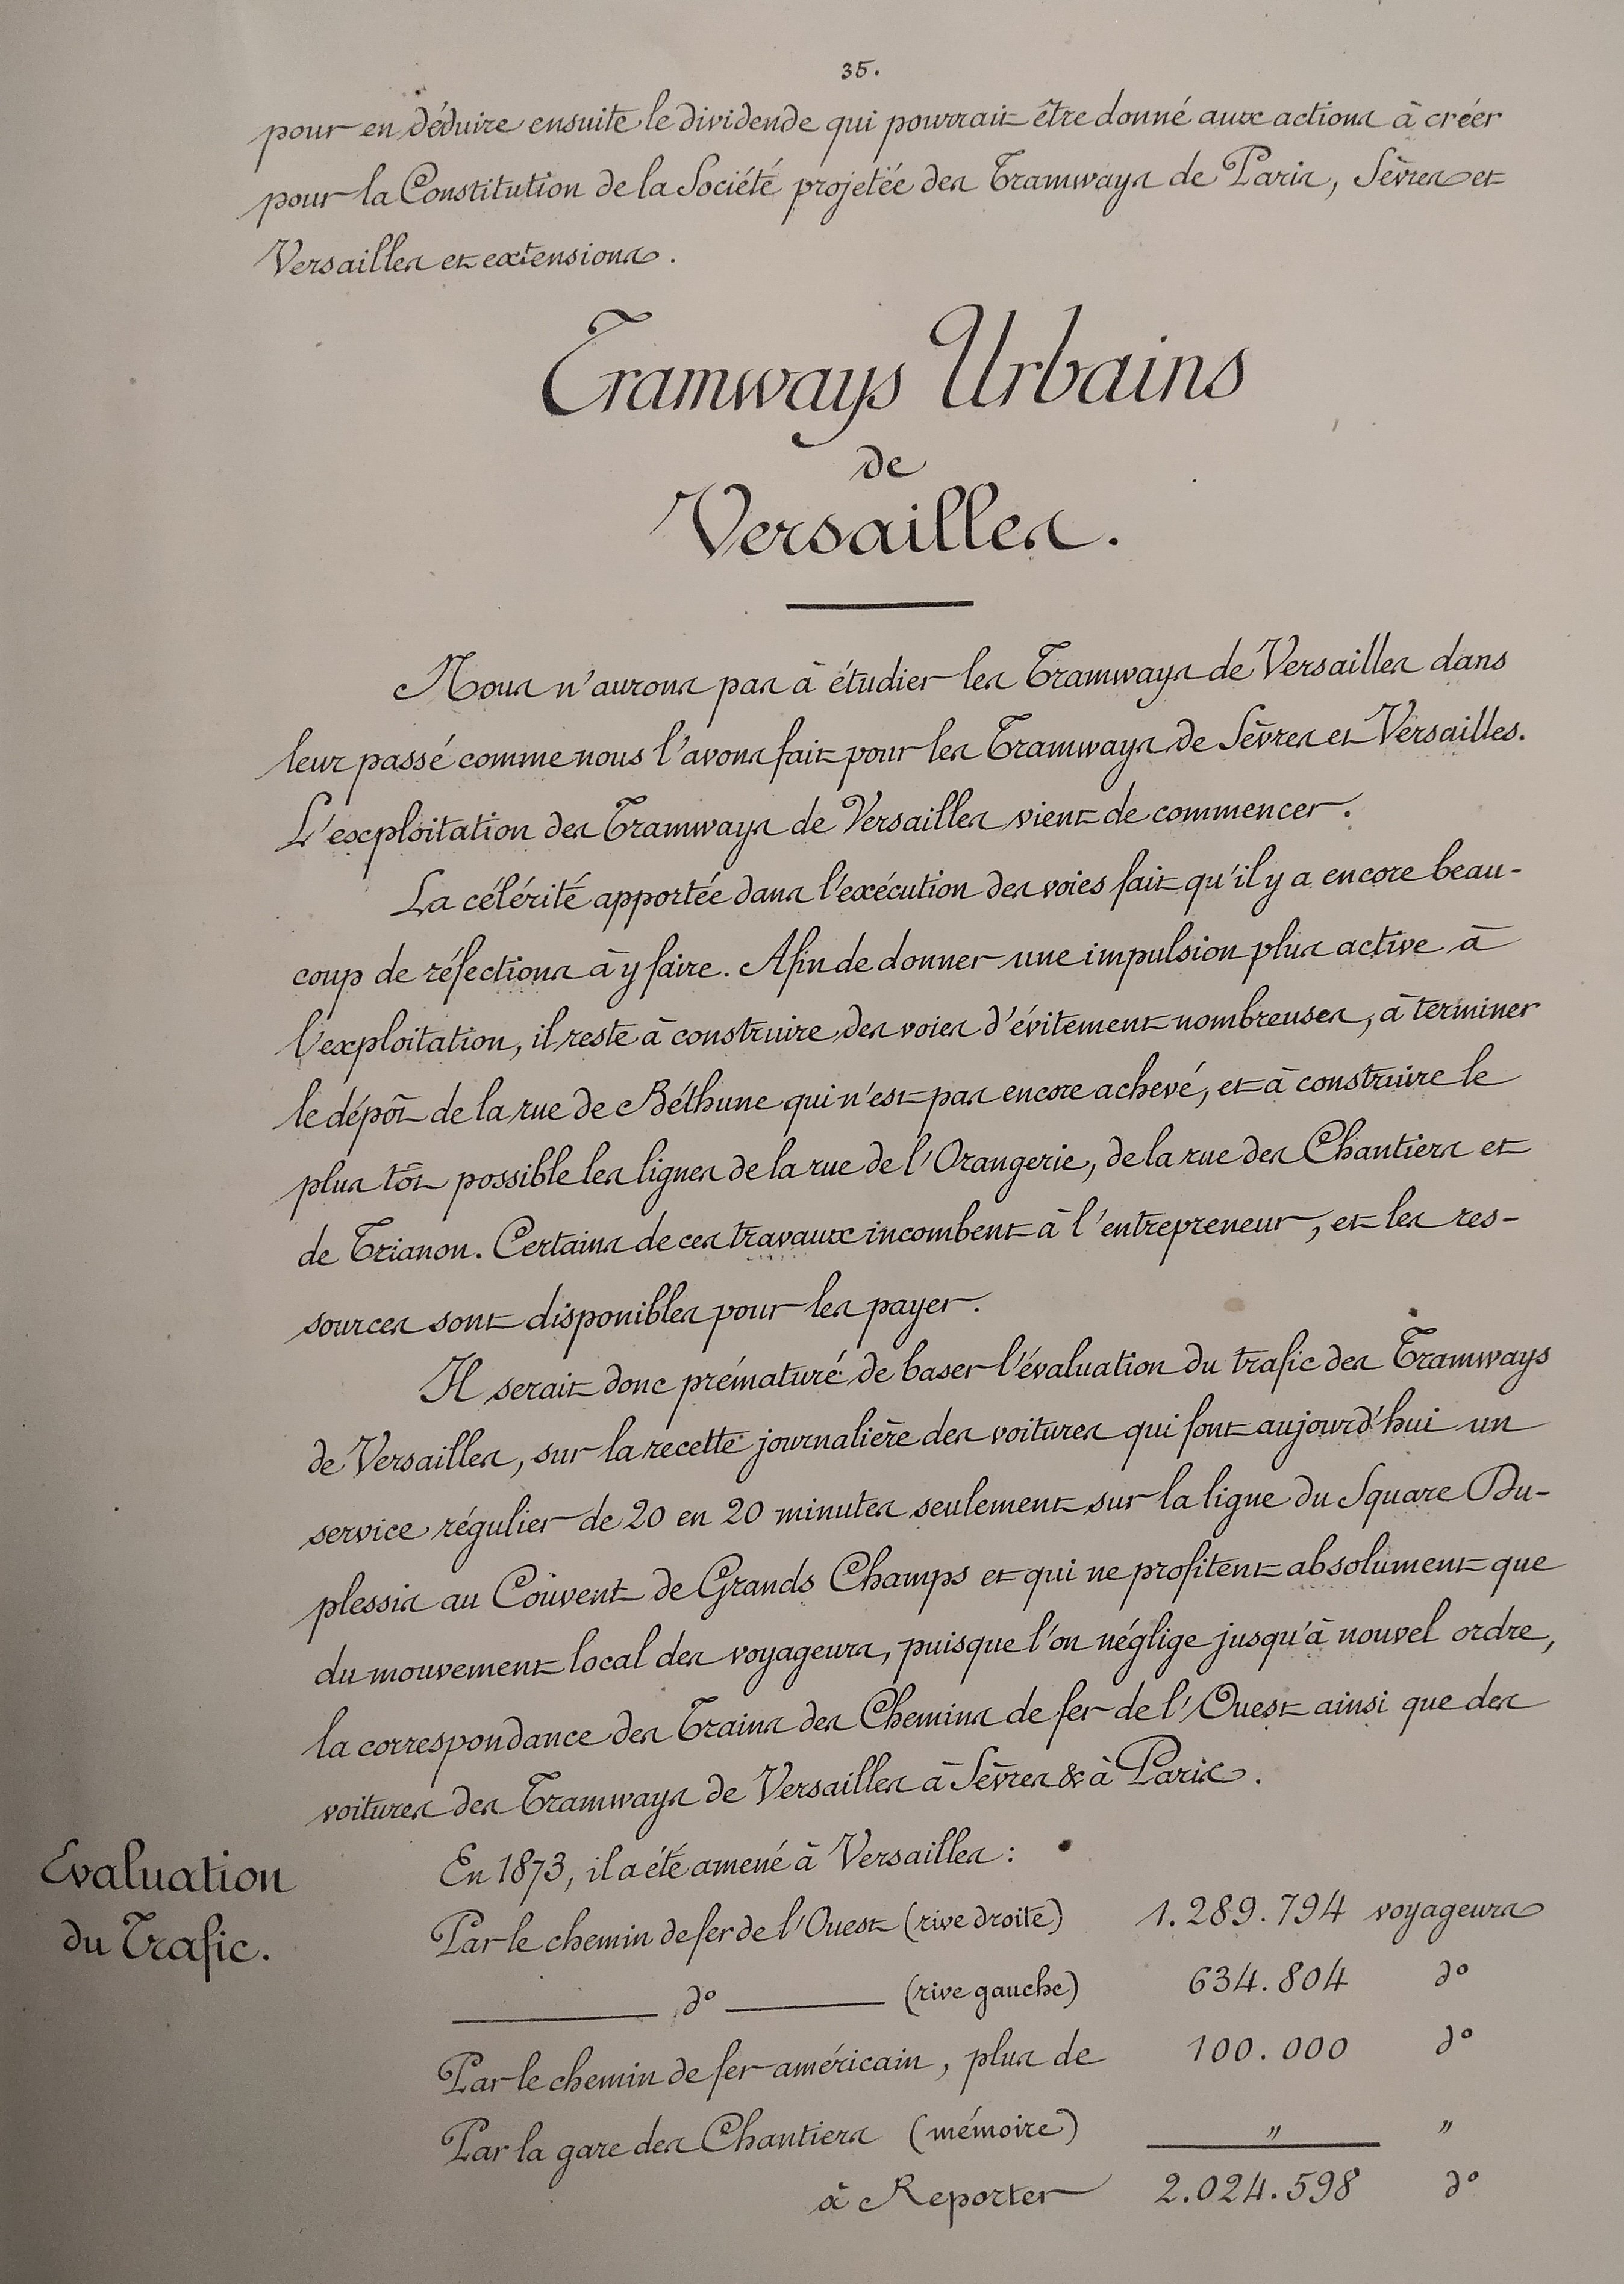 35.
pour en déduire ensuite le dividende qui pourrait être donné aux actions à créer
pour la Constitution de la Société projetée des Tramways de Paris, Sèvres et
Versailles et extensions.
Tramways Urbains
de
Versailles.
Nous n'aurons pas à étudier les Tramways de Versailles dans
leur passé comme nous l'avons fait pour les Tramways de Sèvres et Versailles.
L'exploitation des Tramways de Versailles vient de commencer.
La célérité apportée dans l'exécution des voies fait qu'il y a encore beau-
coup de réfections à y faire. Afin de donner une impulsion plus active à
l'exploitation, il reste à construire des voies d'évitement nombreuses, à terminer
le dépôt de la rue de Béthune qui n'est pas encore achevé, et à construire le
plus tôt possible les lignes de la rue de l'Orangerie, de la rue des Chantiers et
de Trianon. Certains de ces travaux incombent à l'entrepreneur, et les res-
sources sont disponibles pour les payer.
Il serait donc prématuré de baser l'évaluation du trafic des Tramways
de Versailles, sur la recette journalière des voitures qui font aujourd'hui un
service régulier de 20 en 20 minutes seulement sur la ligne du Square Du-
plessis au Couvent de Grands Champs et qui ne profitent absolument que
du mouvement local des voyageurs, puisque l'on néglige jusqu'à nouvel ordre,
la correspondance des Trains des Chemins de fer de l'Ouest ainsi que des
voitures des Tramways de Versailles à Sèvres & à Paris.
Evaluation
du Trafic.
En 1873, il a été amené à Versailles :
Par le chemin de fer de l'Ouest (rive droite) 1.289.794 voyageurs
d° (rive gauche) 634.804 d°
Par le chemin de fer américain, plus de 100.000 d°
Par la gare des Chantiers (mémoire) " "
à Reporter 2.024.598 d°